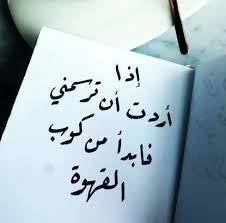 إذا
أردت أن ترسمني
فابدأ من كوب
القهوة